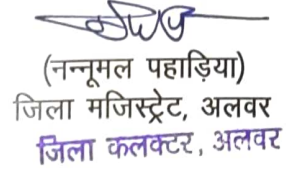 (नन्नूमल पहाड़िया)
जिला मजिस्ट्रेट, अलवर
जिला कलक्टर, अलवर